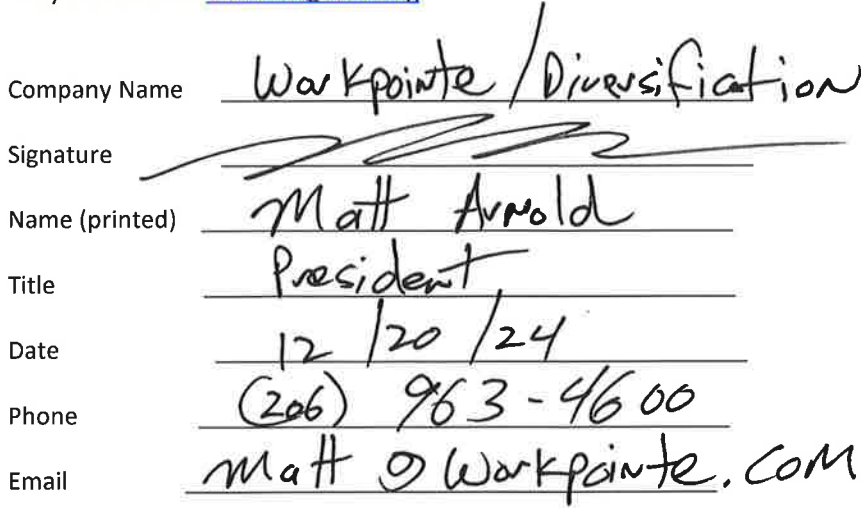 Company Name Workpointe / Diversification
Signature
Name (printed) Matt Arnold
Title President
Date 12/20/24
Phone (206) 963-4600
Email Matt @ Workpointe.com